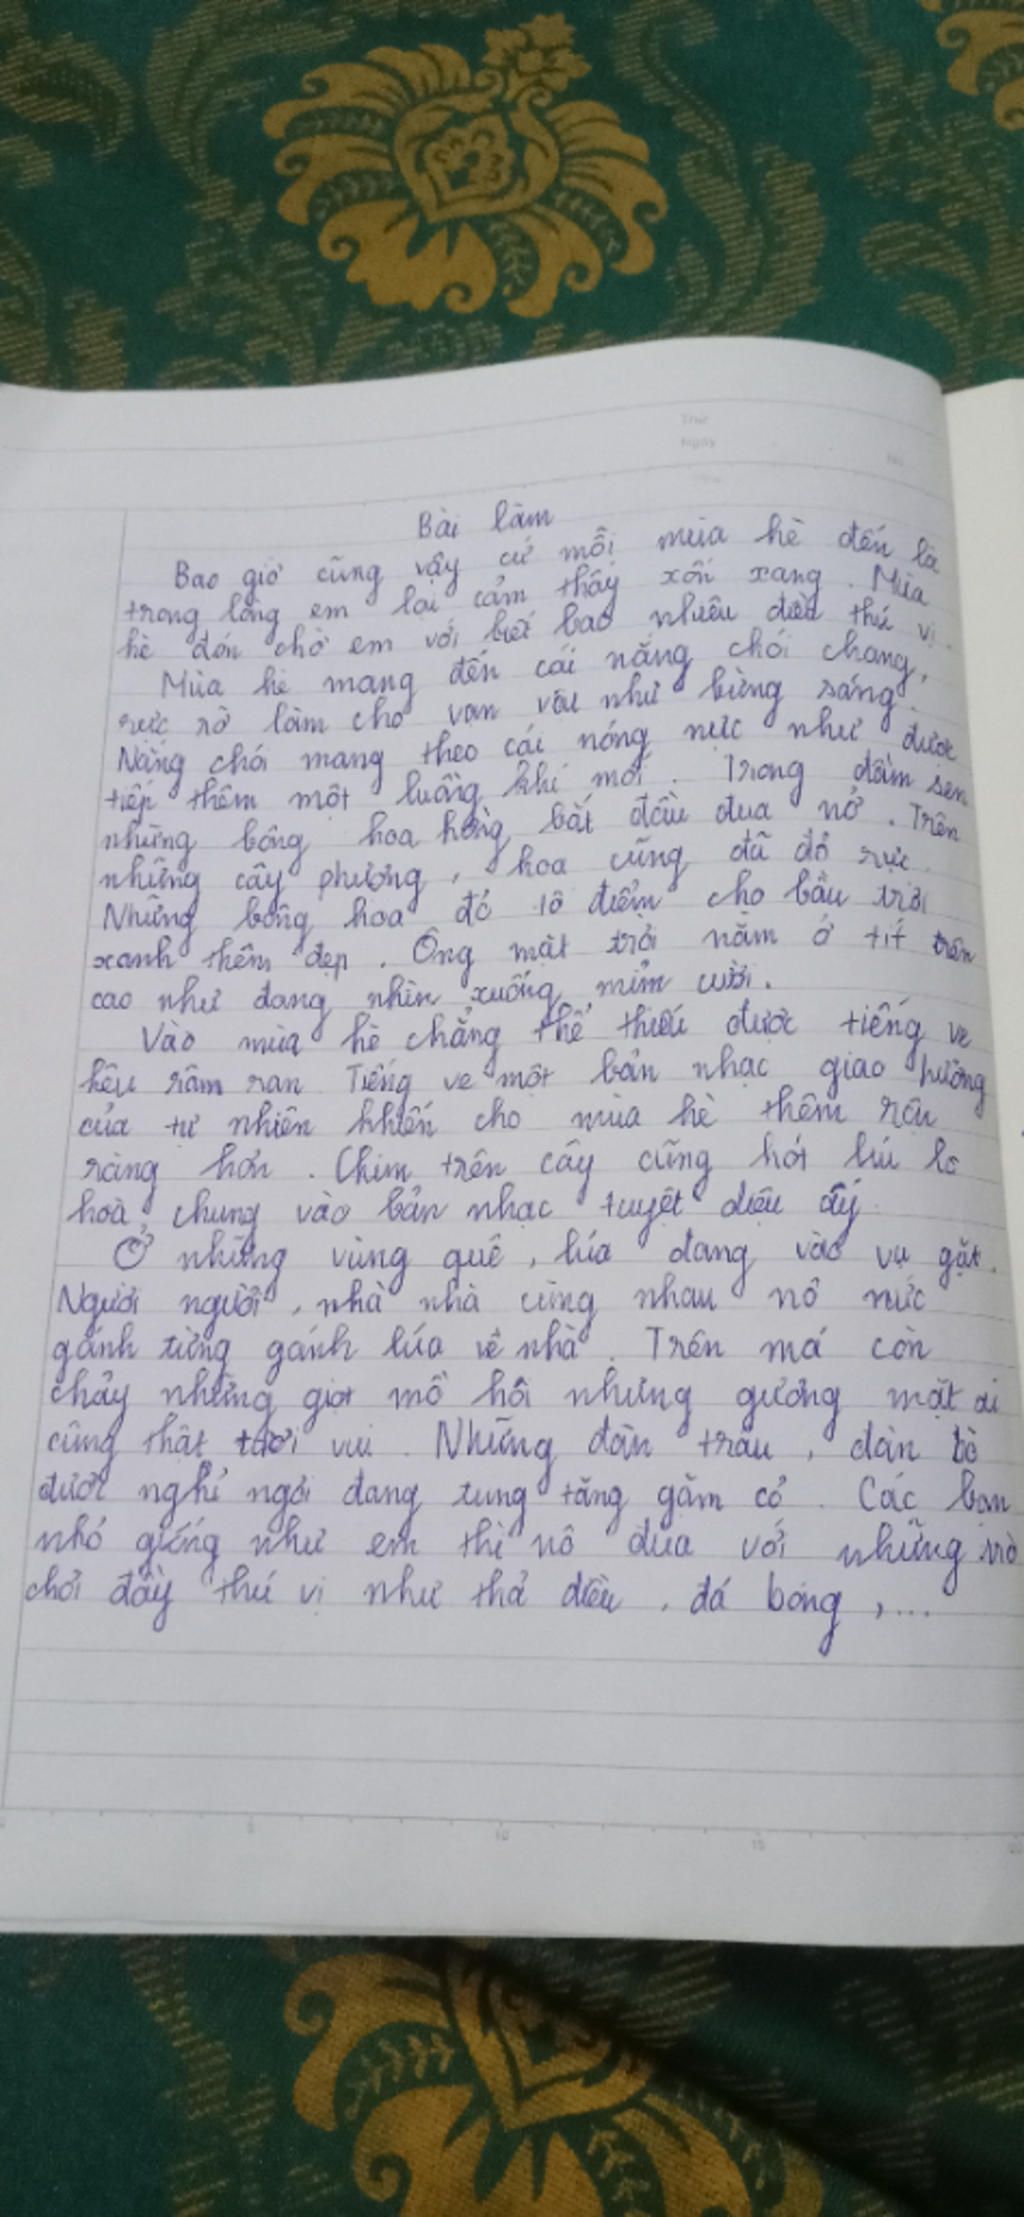 Thứ
Ngày
No.
Bài làm
Bao giờ cũng vậy cứ mỗi mùa hè đến là
trong lòng em lại cảm thấy xốn xang. Mùa
hè đón chờ em với biết bao nhiêu điều thú vị.
Mùa hè mang đến cái nắng chói chang,
rực rỡ làm cho vạn vật như bừng sáng.
Nắng chói mang theo cái nóng nực như được
tiếp thêm một luồng khí mới. Trong đầm sen
những bông hoa hồng bắt đầu đua nở. Trên
những cây phượng, hoa cũng đã đỏ rực.
Những bông hoa đó tô điểm cho bầu trời
xanh thêm đẹp. Ông mặt trời nằm ở tít trên
cao như đang nhìn xuống mỉm cười.
Vào mùa hè chẳng thể thiếu được tiếng ve
kêu râm ran. Tiếng ve một bản nhạc giao hưởng
của tự nhiên khiến cho mùa hè thêm rộn
ràng hơn. Chim trên cây cũng hót líu lo
hoà chung vào bản nhạc tuyệt diệu ấy.
Ở những vùng quê, lúa đang vào vụ gặt.
Người người, nhà nhà cùng nhau nô nức
gánh từng gánh lúa về nhà. Trên má còn
chảy những giọt mồ hôi nhưng gương mặt ai
cũng thật tươi vui. Những đàn trâu, đàn bò
được nghỉ ngơi đang tung tăng gặm cỏ. Các bạn
nhỏ giống như em thì nô đùa với những trò
chơi đầy thú vị như thả diều, đá bóng,...
5 10 15 20